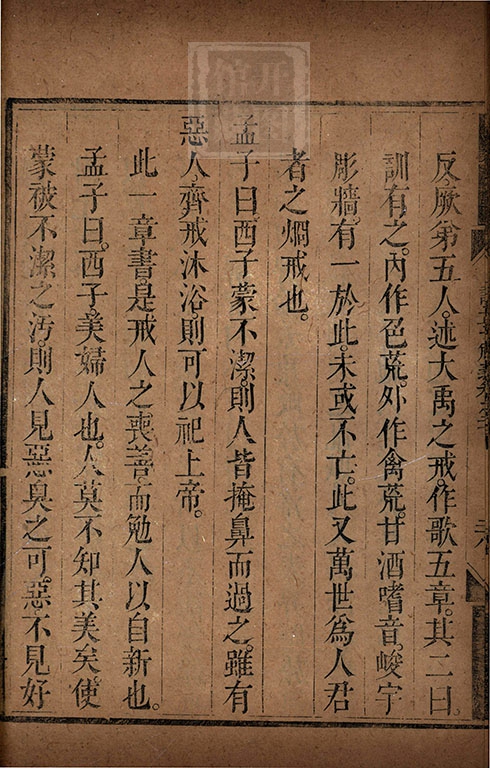 反厥弟五人。述大禹之戒。作歌五章。其二曰。
訓有之。内作色荒。外作禽荒。甘酒嗜音。峻宇
彫牆。有一於此。未或不亡。此又萬世爲人君
者之烱戒也。
孟子曰。西子蒙不潔。則人皆掩鼻而過之。雖有
惡人。齊戒沐浴。則可以祀上帝。
此一章書。是戒人之喪善。而勉人以自新也。
孟子曰。西子。美婦人也。人莫不知其美矣。使
蒙被不潔之汚。則人見惡臭之可惡。不見好